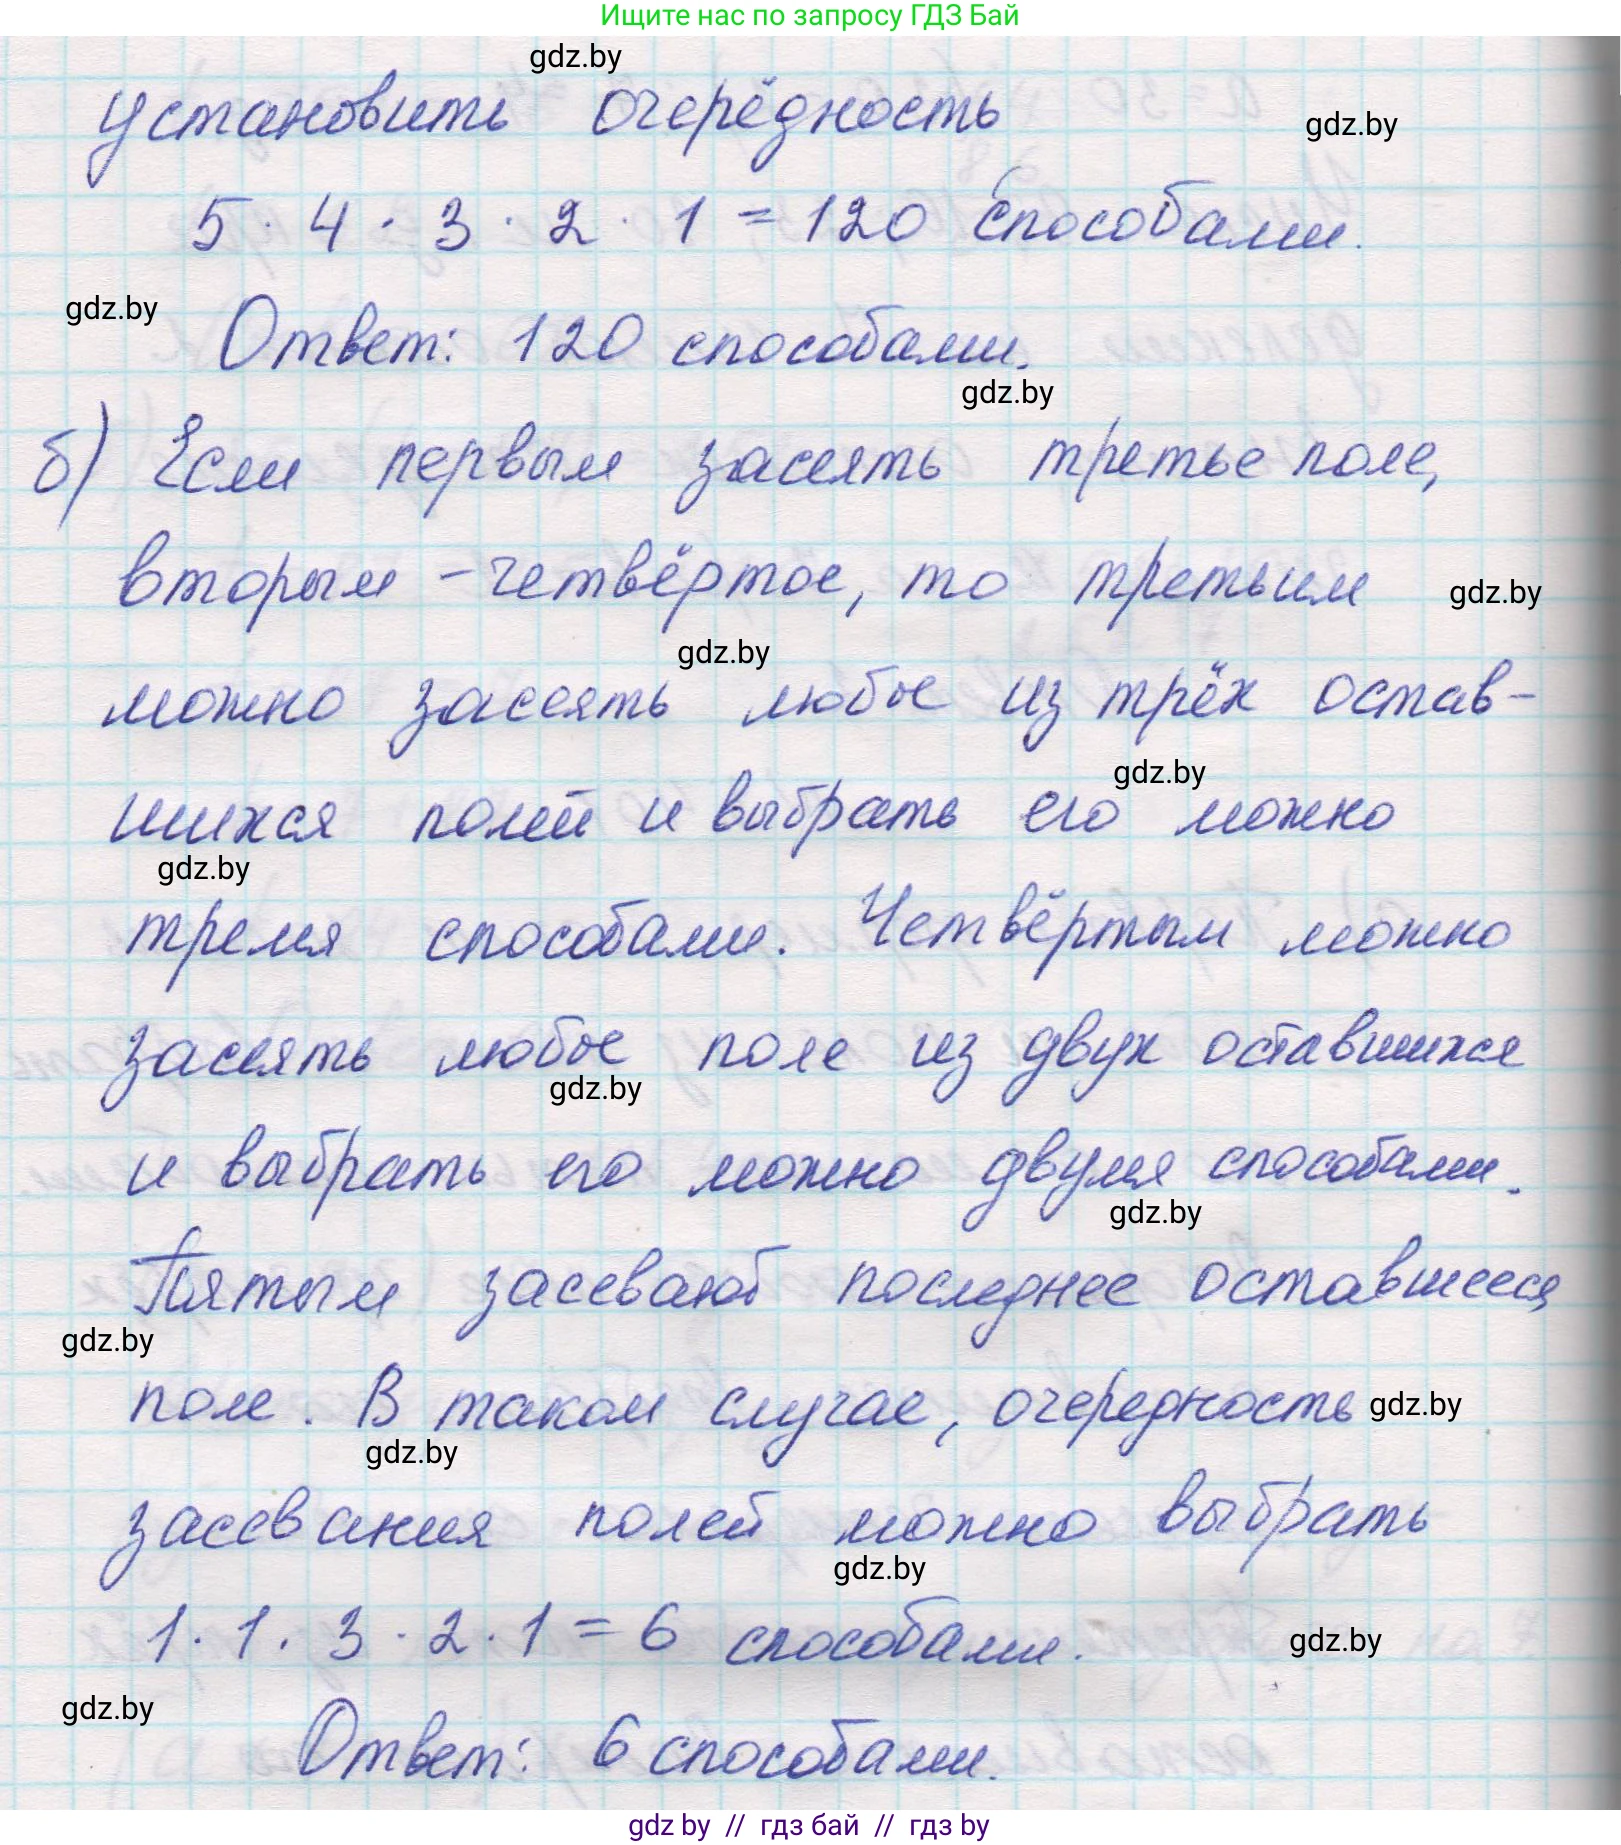 Ищите нас по запросу ГДЗ Бай
gdz.by
установить очерёдность
gdz.by
5 · 4 · 3 · 2 · 1 = 120 способами.
gdz.by
Ответ: 120 способами.
gdz.by
б) Если первым засеять третье поле,
вторым - четвёртое, то третьим
gdz.by
gdz.by
можно засеять любое из трёх остав-
gdz.by
шихся полей и выбрать его можно
gdz.by
тремя способами. Четвёртым можно
засеять любое поле из двух оставшихся
gdz.by
и выбрать его можно двумя способами.
gdz.by
Пятым засевают последнее оставшееся
gdz.by
поле. В таком случае, очередность
gdz.by
gdz.by
засевания полей можно выбрать
gdz.by
1 · 1 · 3 · 2 · 1 = 6 способами.
gdz.by
gdz.by
Ответ: 6 способами.
gdz by // гдз бай // гдз by